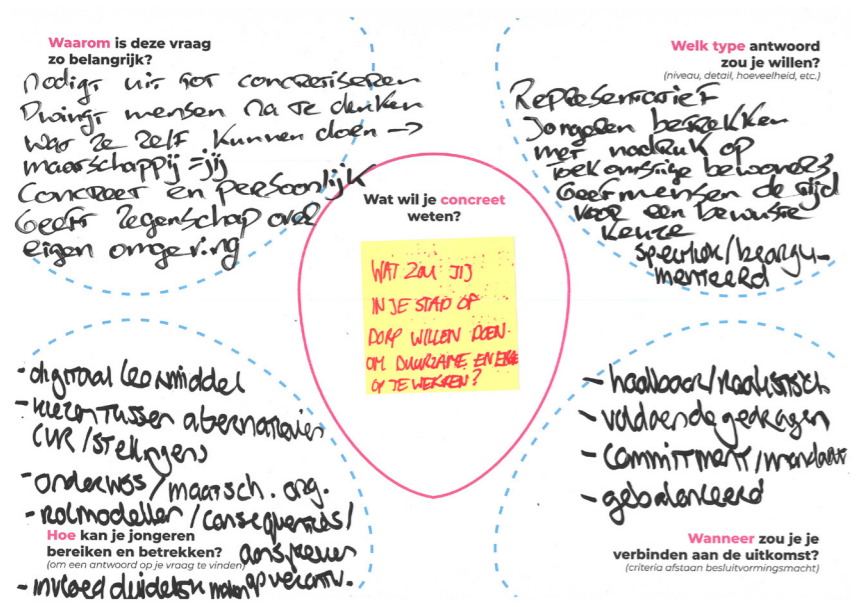 Waarom is deze vraag
zo belangrijk?
Nodigt uit tot concretiseren
Dwingt mensen na te denken
wat ze zelf kunnen doen →
maatschappij = jij
Concreet en persoonlijk
Geeft zegenschap over
eigen omgeving
Welk type antwoord
zou je willen?
(niveau, detail, hoeveelheid, etc.)
Representatief
Jongeren betrekken
met nadruk op
toekomstige bewoners
Geeft mensen de tijd
voor een bewuste
keuze
specifiek/beargu-
menteerd
Wat wil je concreet
weten?
WAT ZOU JIJ
IN JE STAD OF
DORP WILLEN DOEN
OM DUURZAME ENERGIE
OP TE WEKKEN?
- digitaal leermiddel
- kiezen tussen alternatieven
/stellingen
- onderwijs/maatsch. org.
- rolmodellen/consequenties/
aanspreken
op verantw.
- invloed duidelijk maken
Hoe kan je jongeren
bereiken en betrekken?
(om een antwoord op je vraag te vinden)
- haalbaar/realistisch
- voldoende gedragen
- commitment/mandaat
- gebalanceerd
Wanneer zou je je
verbinden aan de uitkomst?
(criteria afstaan besluitvormingsmacht)